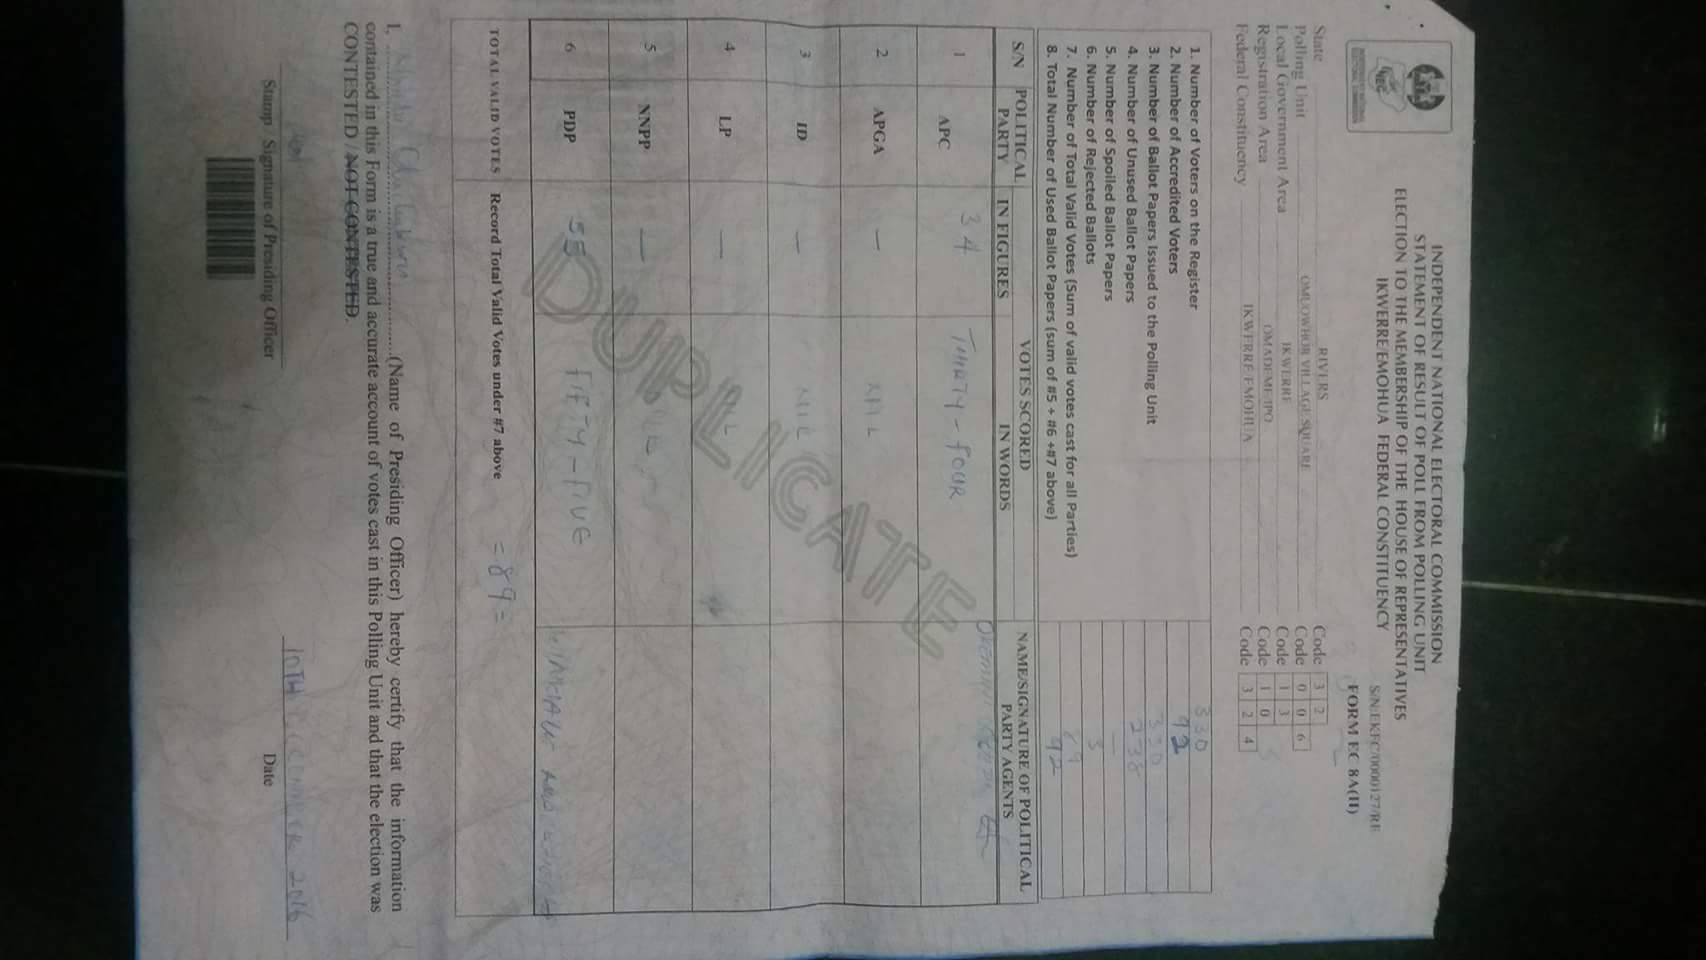 INDEPENDENT NATIONAL ELECTORAL COMMISSION
STATEMENT OF RESULT OF POLL FROM POLLING UNIT
ELECTION TO THE MEMBERSHIP OF THE HOUSE OF REPRESENTATIVES
IKWERRE/EMOHUA FEDERAL CONSTITUENCY
S/N:EKFC/0000127/RE
FORM EC 8A(II)
State RIVERS Code 3 2
Polling Unit OMUOWHOR VILLAGE SQUARE Code 0 0 6
Local Government Area IKWERRE Code 1 3
Registration Area OMADEME/IPO Code 1 0
Federal Constituency IKWERRE EMOHUA Code 3 2 4
1. Number of Voters on the Register 330
2. Number of Accredited Voters 92
3. Number of Ballot Papers Issued to the Polling Unit 330
4. Number of Unused Ballot Papers 238
5. Number of Spoiled Ballot Papers —
6. Number of Rejected Ballots 3
7. Number of Total Valid Votes (Sum of valid votes cast for all Parties) 89
8. Total Number of Used Ballot Papers (sum of #5 + #6 +#7 above) 92
S/N POLITICAL PARTY VOTES SCORED NAME/SIGNATURE OF POLITICAL PARTY AGENTS
IN FIGURES IN WORDS
1 APC 34 THIRTY-FOUR
2 APGA — NIL
3 ID — NIL
4 LP — NIL
5 NNPP — NIL
6 PDP 55 FIFTY-FIVE
TOTAL VALID VOTES Record Total Valid Votes under #7 above =89=
DUPLICATE
I, (Name of Presiding Officer) hereby certify that the information
contained in this Form is a true and accurate account of votes cast in this Polling Unit and that the election was
CONTESTED / NOT CONTESTED.
10TH DECEMBER 2016
Stamp / Signature of Presiding Officer Date